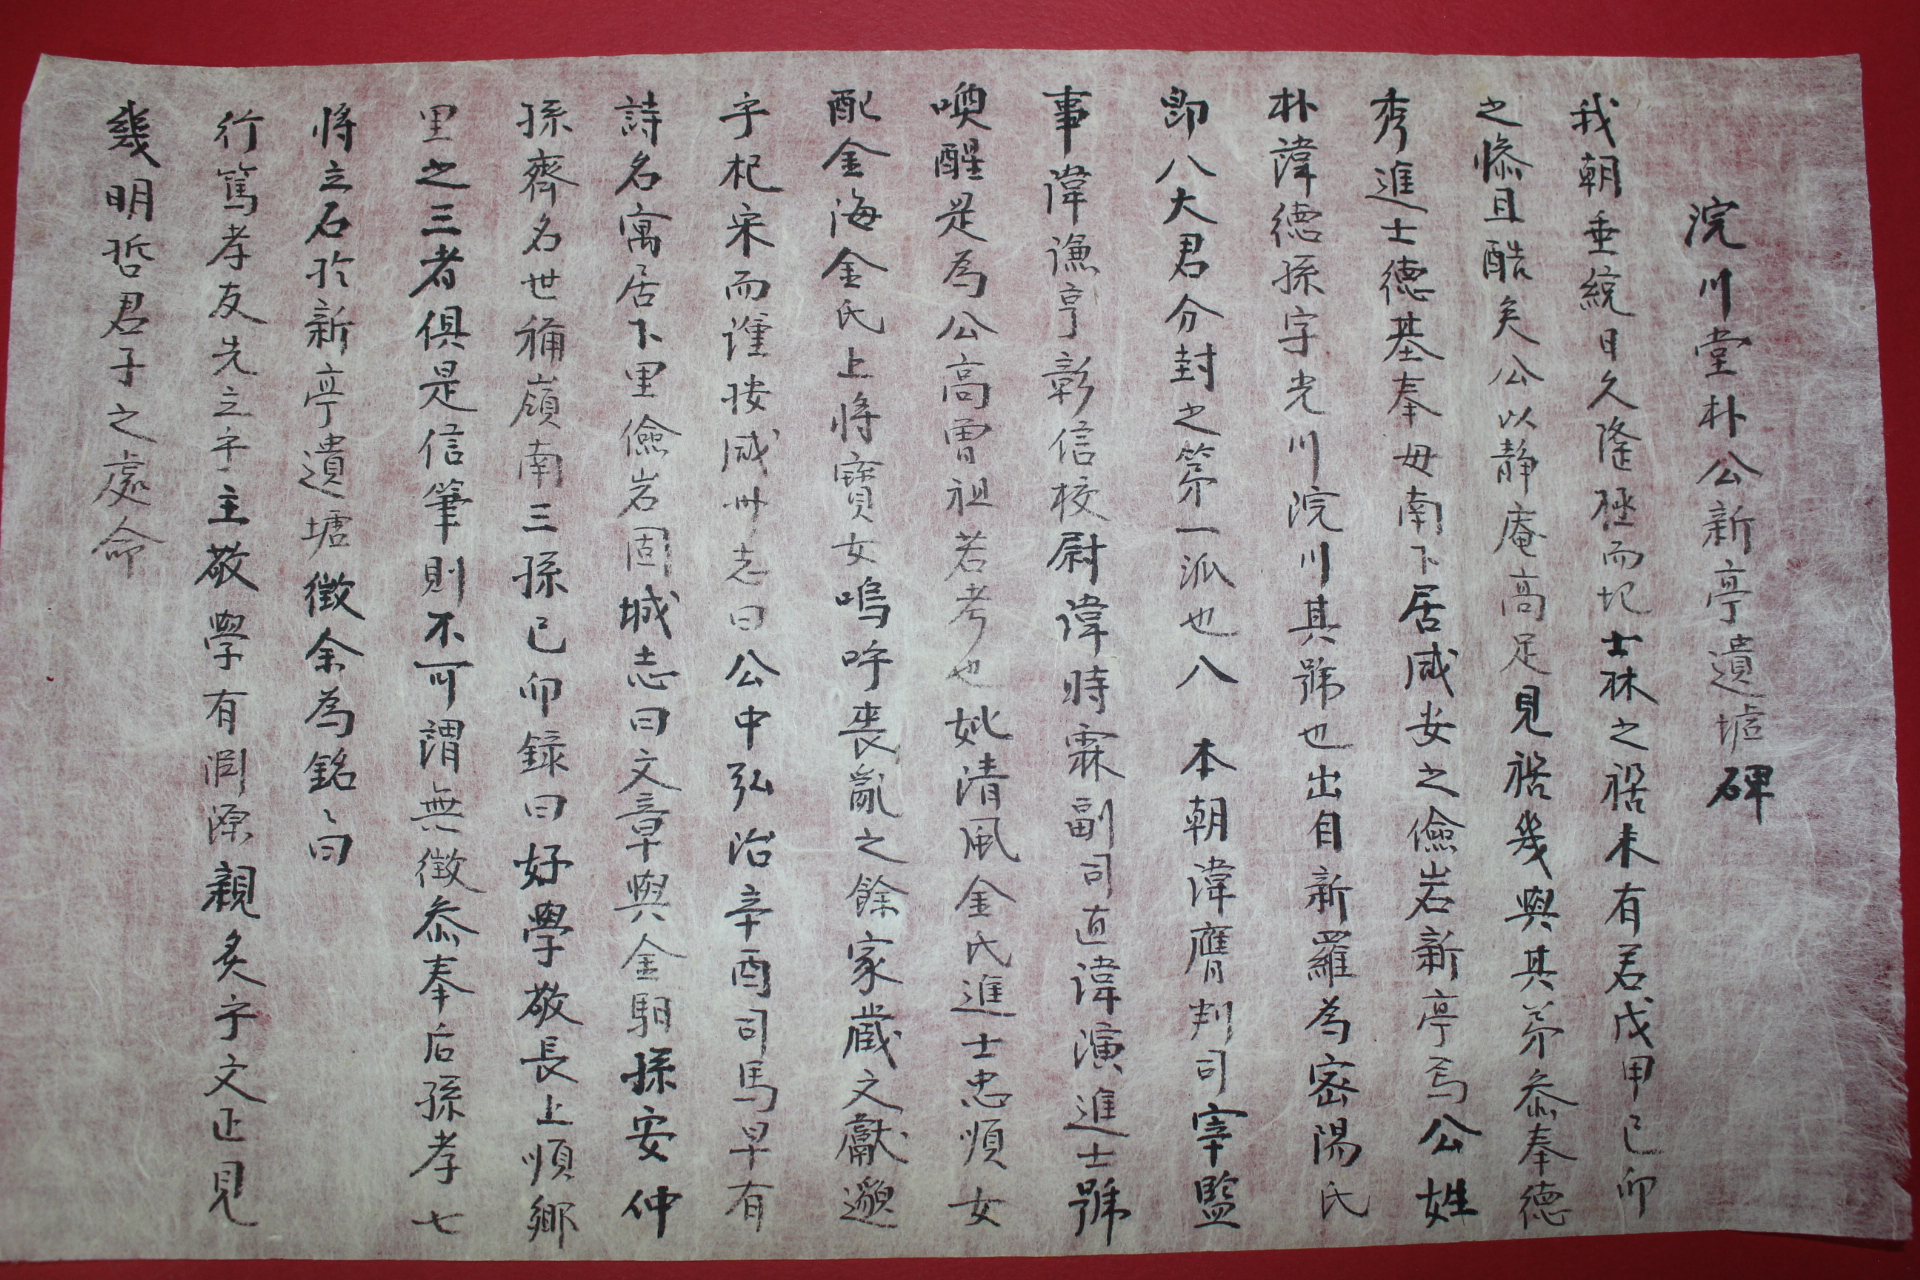 浣川堂朴公新亭遺墟碑
我朝垂統日久隆極而圮士林之禍未有若戊甲己卯
之慘且酷矣公以静庵高足見禍幾與其苐叅奉德
秀進士德基奉母南下居咸安之儉岩新亭焉公姓
朴諱德孫字光川浣川其號也出自新羅為密陽氏
即八大君分封之苐一派也八 本朝諱膺判司宰監
事諱谦亨彰信校尉諱時霖副司直諱演進士號
喚醒是為公高曽祖若考也妣清風金氏進士忠順女
配金海金氏上將寶女嗚呼喪亂之餘家藏文獻邈
乎杞宋而謹按咸州志曰公中弘治辛酉司馬早有
詩名寓居下里儉岩固城志曰文章與金馹孫安仲
孫齊名世稱嶺南三孫己卯録曰好學敬長上順鄉
里之三者俱是信筆則不可謂無徴叅奉后孫孝七
將立石於新亭遺墟徵余為銘〻曰
行篤孝友先立乎主敬學有淵源親炙乎文正見
幾明哲君子之處命